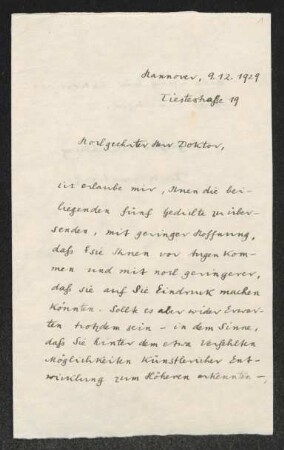 1
Hannover, 9.12.1929
Tiestestraße 19
Hochgeehrter Herr Doktor,
ich erlaube mir, Ihnen die bei-
liegenden fünf Gedichte zu über-
senden, mit geringer Hoffnung,
daß sie Ihnen vor Augen kom-
men und mit noch geringerer,
daß sie auf Sie Eindruck machen
könnten. Sollte es aber wider Erwar-
ten trotzdem sein – in dem Sinne,
daß Sie hinter dem etwa Verfehlten
Möglichkeiten künstlerischer Ent-
wicklung zum Höheren erkennten –,